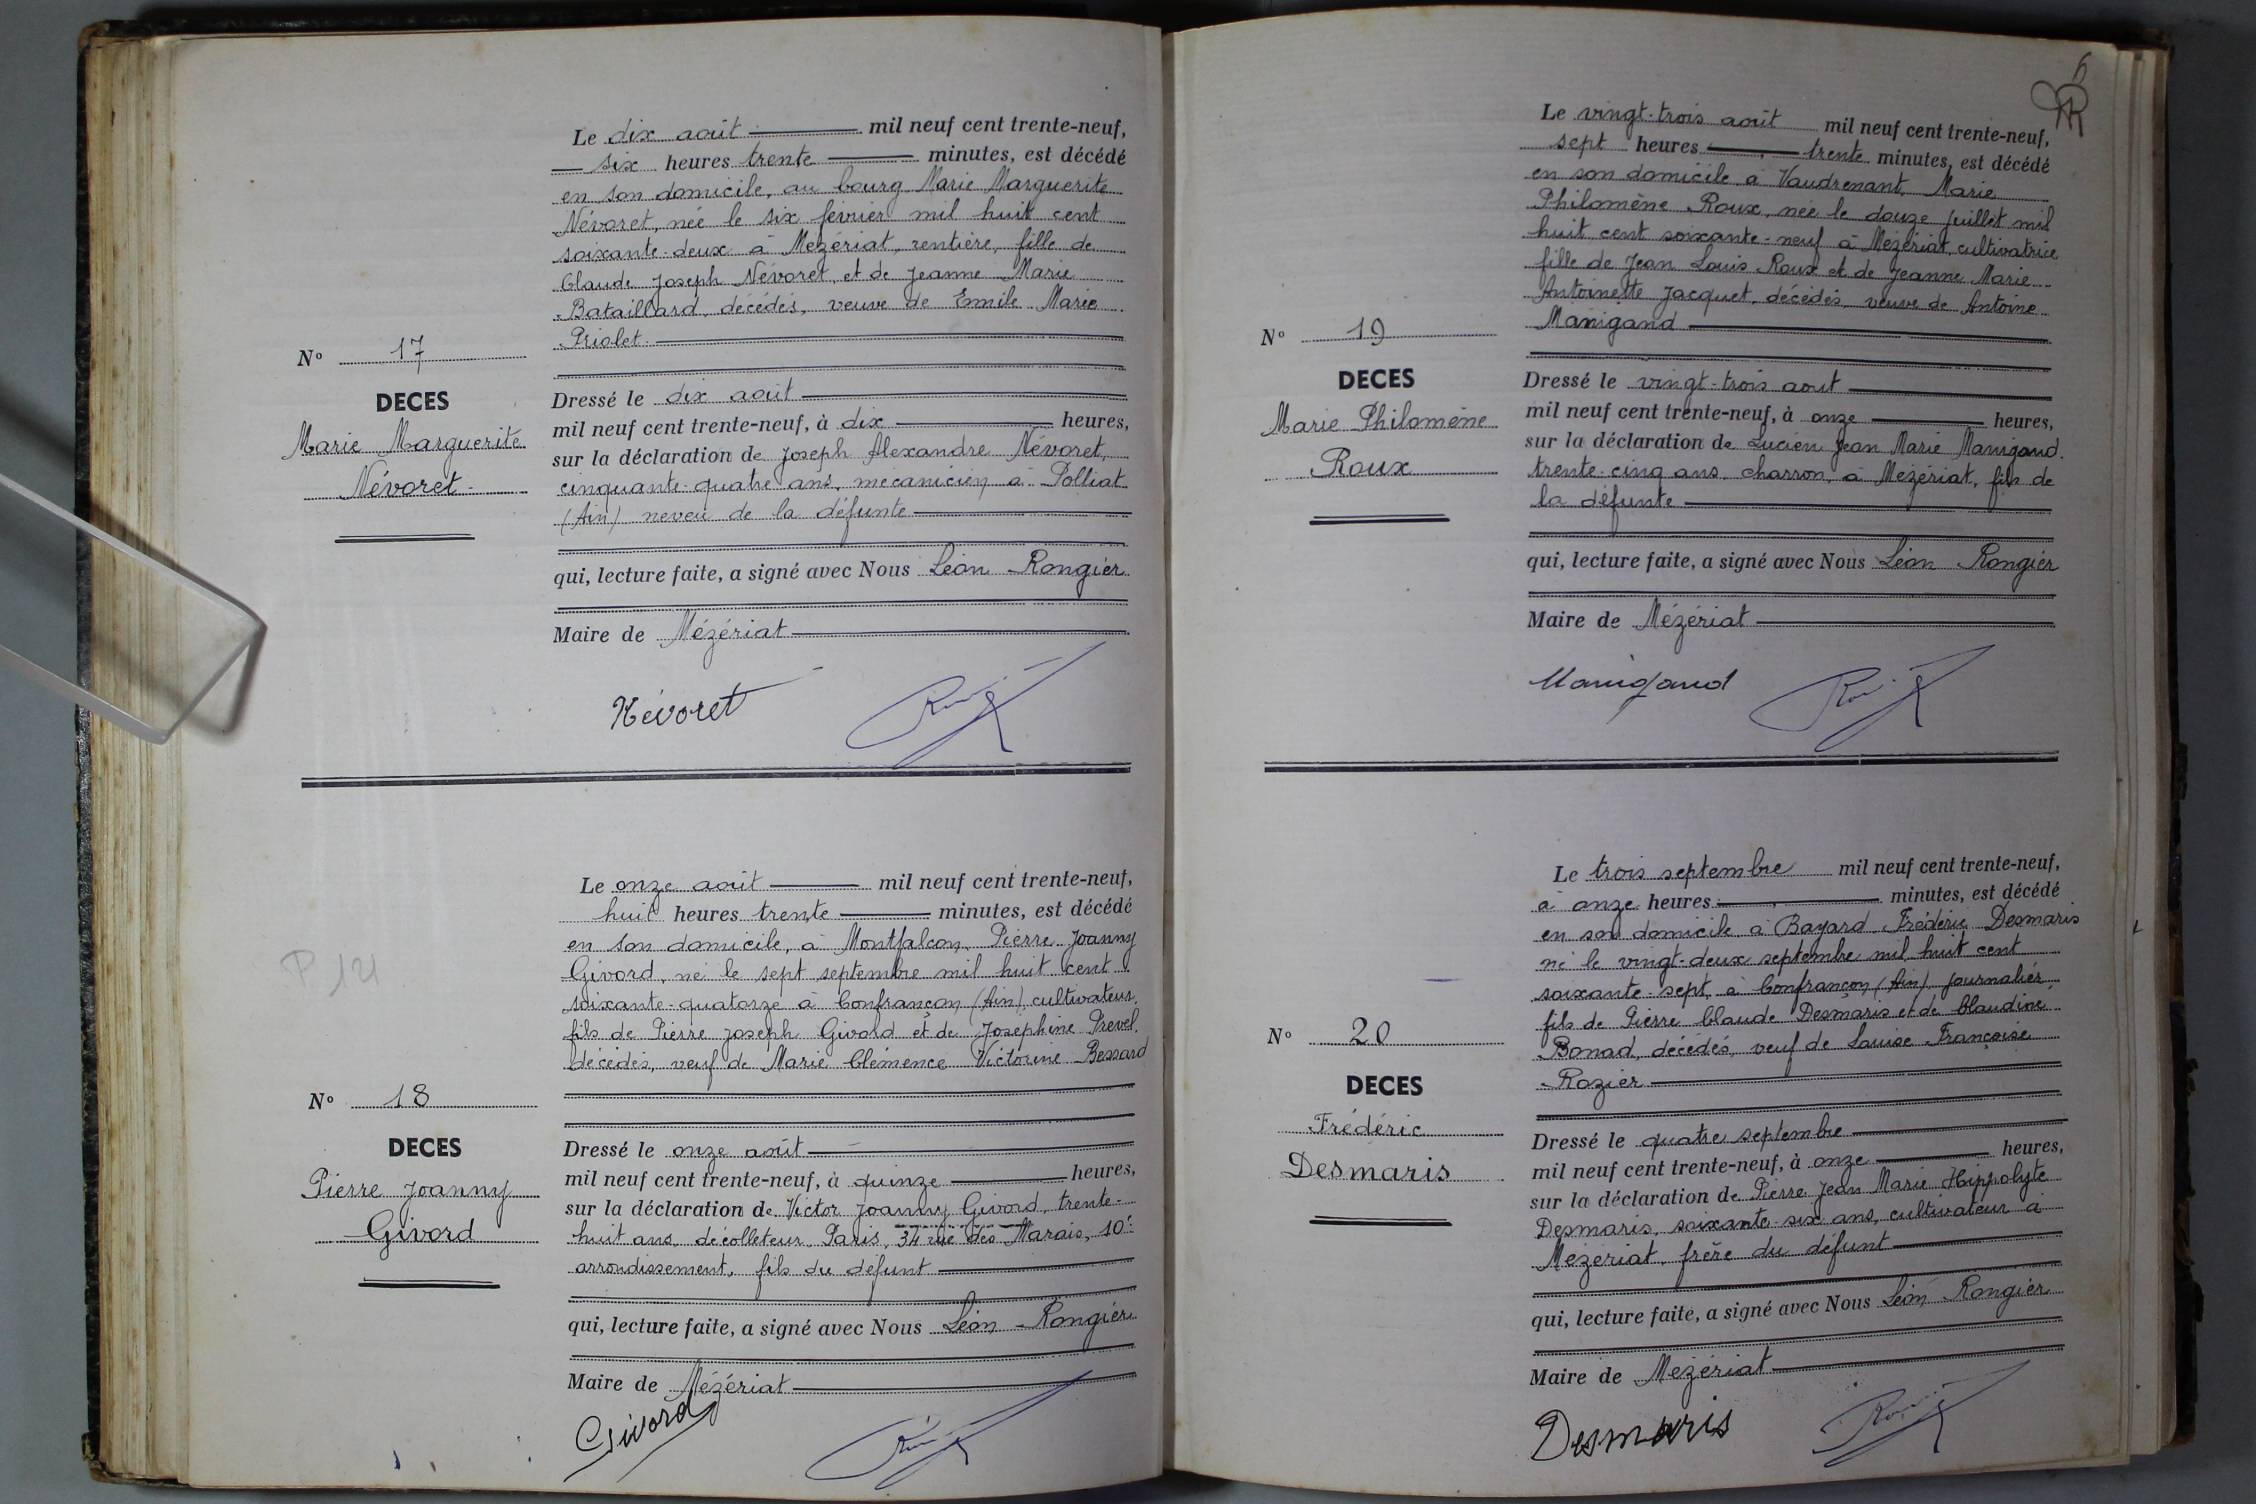 Le dix août mil neuf cent trente-neuf,
six heures trente minutes, est décédé
en son domicile, au bourg Marie Marguerite
Névoret, née le six février mil huit cent
soixante-deux à Mézériat, rentière, fille de
Claude Joseph Névoret et de Jeanne Marie
Bataillard, décédés, veuve de Emile Marie
Priolet.
N° 17
DECES
Marie Marguerite
Névoret
Dressé le dix août
mil neuf cent trente-neuf, à dix heures,
sur la déclaration de Joseph Alexandre Névoret,
cinquante-quatre ans, mécanicien à Polliat
(Ain) neveu de la défunte
qui, lecture faite, a signé avec Nous Léon Rongier
Maire de Mézériat
Névoret
Le onze août mil neuf cent trente-neuf,
huit heures trente minutes, est décédé
en son domicile, à Montfalcon, Pierre Joanny
Givord, né le sept septembre mil huit cent
soixante-quatorze à Confrançon (Ain), cultivateur,
fils de Pierre Joseph Givord et de Josephine Prevel,
décédés, veuf de Marie Clémence Victorine Bessard
P 121
N° 18
DECES
Pierre Joanny
Givord
Dressé le onze août
mil neuf cent trente-neuf, à quinze heures,
sur la déclaration de Victor Joanny Givord, trente-
huit ans, décolleteur, Paris, 34 rue des Marais, 10e
arrondissement, fils du défunt
qui, lecture faite, a signé avec Nous Léon Rongier
Maire de Mézériat
Givord
6
Le vingt-trois août mil neuf cent trente-neuf,
sept heures trente minutes, est décédé
en son domicile à Vaudrenant, Marie
Philomène Roux, née le douze juillet mil
huit cent soixante-neuf à Mézériat, cultivatrice
fille de Jean Louis Roux et de Jeanne Marie
Antoinette Jacquet, décédés, veuve de Antoine
Manigand
N° 19
DECES
Marie Philomène
Roux
Dressé le vingt-trois août
mil neuf cent trente-neuf, à onze heures,
sur la déclaration de Lucien Jean Marie Manigand.
trente-cinq ans, charron, à Mézériat, fils de
la défunte
qui, lecture faite, a signé avec Nous Léon Rongier
Maire de Mézériat
Manigand
Le trois septembre mil neuf cent trente-neuf,
à onze heures minutes, est décédé
en son domicile à Bayard Frédéric Desmaris
né le vingt-deux septembre mil huit cent
soixante-sept, à Confrançon (Ain) journalier
fils de Pierre Claude Desmaris et de Claudine
Bonad, décédés, veuf de Louise Françoise
Rozier
N° 20
DECES
Frédéric
Desmaris
Dressé le quatre septembre
mil neuf cent trente-neuf, à onze heures,
sur la déclaration de Pierre Jean Marie Hippolyte
Desmaris, soixante-six ans, cultivateur à
Mézériat, frère du défunt
qui, lecture faite, a signé avec Nous Léon Rongier
Maire de Mézériat
Desmaris